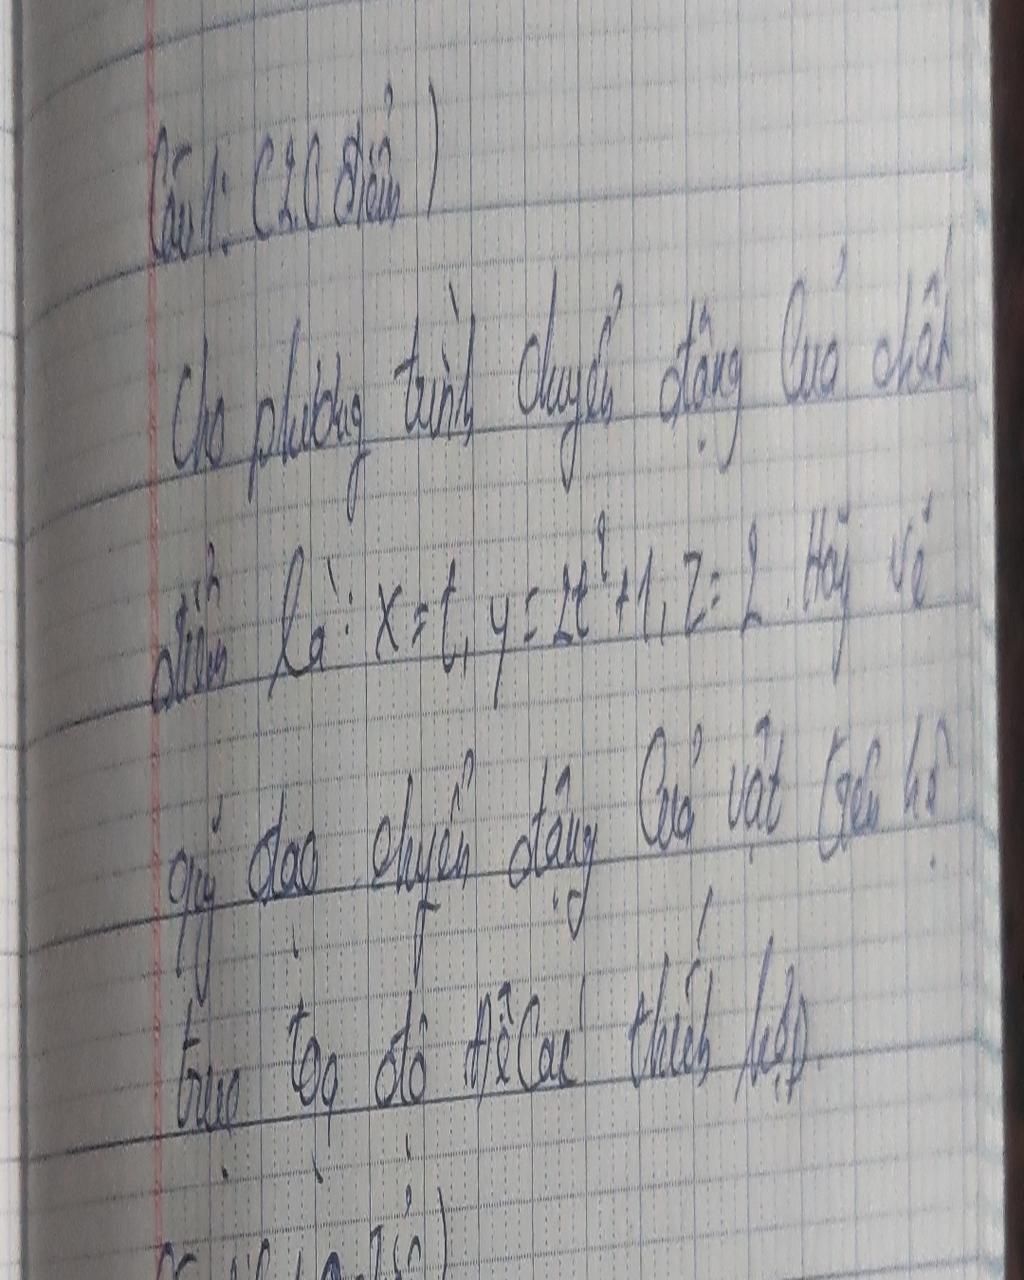 Câu 1: (2.0 điểm)
Cho phương trình chuyển động của chất
điểm là: x = t, y = 2t² + 1, z = 2. Hãy vẽ
quỹ đạo chuyển động của vật trên hệ
trục tọa độ Đề Các thích hợp.